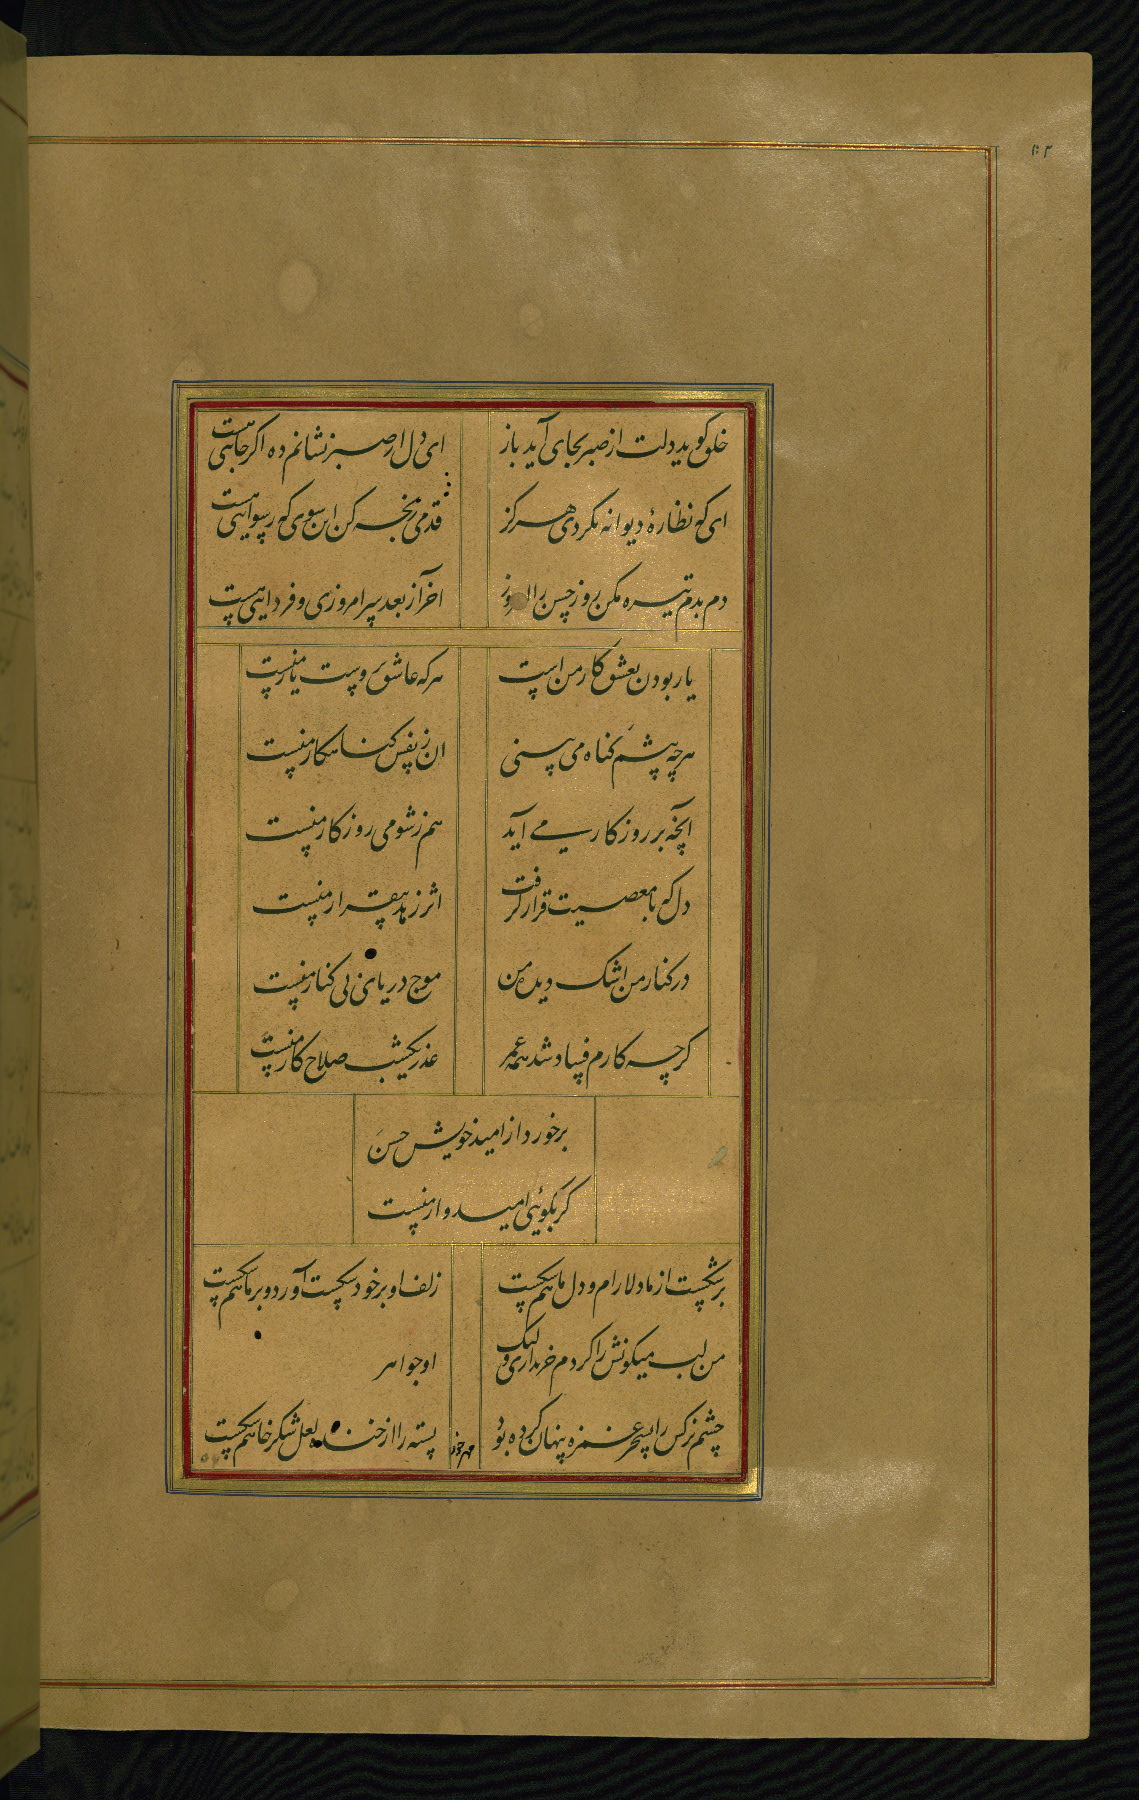 ۵۲
خلق گوید دلت از صبر بجای آید باز
ای دل از صبر نشانم ده اگر جائی هست
ای که نظارهٔ دیوانه نکردی هرگز
قدمی رنجه کن این سوی که رسوایی هست
دم بدم تیره مکن روز حسن را
اخر آز بعد پس امروزی و فردایی هست
یار بودن بعشق کار من است
هرکه عاشق ترست یار منست
هرچه چشم گناه می بینی
ان ز نفس گناهکار منست
آنچه بر روزگار می آید
هم ز شومی روزگار منست
دل که با معصیت قرار گرفت
اثر زهد بیقرار منست
در کنار من اشک دیدهٔ من
موج دریای بی کنار منست
گرچه کارم فساد شد همه عمر
عذر یکشب صلاح کار منست
برخورد از امید خویش حسن
گر بگوئی امیدوار منست
برشکست از ما دلارام و دل ما هم شکست
زلف او بر خود شکست آورد و بر ما هم شکست
من لب میگونش را کردم خریداری ولیک
او جواهر
چشم نرگس را بسحر غمزه پنهان کرده بود
پسته را از خنده لعل شکرخا هم شکست